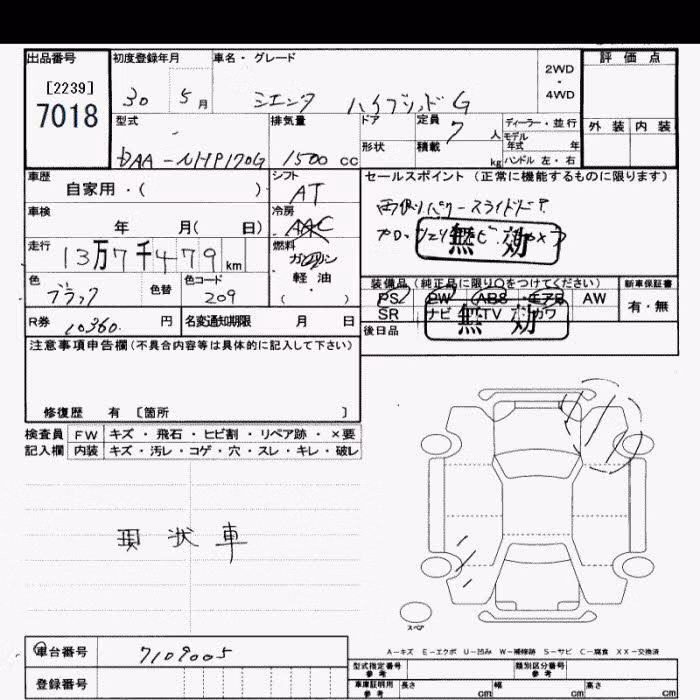 出品番号 初度登録年月 車名・グレード 評価点
[2239]
7018
30 5月 シエンタ ハイブリッドG 2WD ・ 4WD
型式 排気量 ドア 定員 7人 ディーラー・並行 外装 内装
DAA-NHP170G 1500cc 形状 積載 kg モデル年式 年 ハンドル 左・右
車歴 自家用・( ) シフト AT セールスポイント (正常に機能するものに限ります)
車検 年 月( 日) 冷房 AAC 両側パワースライドドア
走行 13万7千479km 燃料 ガソリン 軽油 ( ) 無効
色 ブラック 色替 色コード 209 装備品 (純正品に限り○をつけてください) 新車保証書
PS PW ABS エアB AW 有・無
R券 10,360円 名変通知期限 月 日 SR ナビ TV カワ 無効
後日品
注意事項申告欄(不具合内容等は具体的に記入して下さい)
修復歴 有 〔箇所 〕
検査員 FW キズ・飛石・ヒビ割・リペア跡・×要
記入欄 内装 キズ・汚レ・コゲ・穴・スレ・キレ・破レ
現状車
スペア
A-キズ E-エクボ U-凹み W-補修跡 S-サビ C-腐食 XX-交換済
車台番号 7109005 型式指定番号 参考 類別区分番号 参考
登録番号 車庫証明用 参考 長さ cm 幅 cm 高さ cm